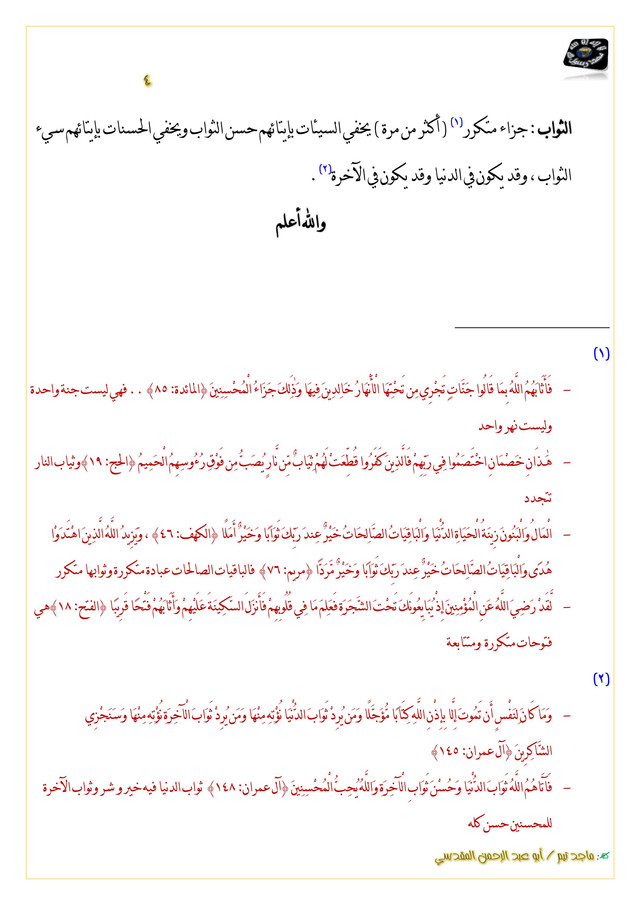 ٤
الثواب : جزاء متكرر(١) ( أكثر من مرة ) يخفي السيئات بإيتائهم حسن الثواب ويخفي الحسنات بإيتائهم سيء
الثواب ، وقد يكون في الدنيا وقد يكون في الآخرة(٢) .
والله أعلم
(١)
– فَأَثَابَهُمُ اللَّهُ بِمَا قَالُوا جَنَّاتٍ تَجْرِي مِن تَحْتِهَا الْأَنْهَارُ خَالِدِينَ فِيهَا وَذَٰلِكَ جَزَاءُ الْمُحْسِنِينَ ﴿المائدة: ٨٥﴾ . . فهي ليست جنة واحدة
وليست نهر واحد
– هَٰذَانِ خَصْمَانِ اخْتَصَمُوا فِي رَبِّهِمْ فَالَّذِينَ كَفَرُوا قُطِّعَتْ لَهُمْ ثِيَابٌ مِّن نَّارٍ يُصَبُّ مِن فَوْقِ رُءُوسِهِمُ الْحَمِيمُ ﴿الحج: ١٩﴾وثياب النار
تتجدد
– الْمَالُ وَالْبَنُونَ زِينَةُ الْحَيَاةِ الدُّنْيَا وَالْبَاقِيَاتُ الصَّالِحَاتُ خَيْرٌ عِندَ رَبِّكَ ثَوَابًا وَخَيْرٌ أَمَلًا ﴿الكهف: ٤٦﴾ ، وَيَزِيدُ اللَّهُ الَّذِينَ اهْتَدَوْا
هُدًى وَالْبَاقِيَاتُ الصَّالِحَاتُ خَيْرٌ عِندَ رَبِّكَ ثَوَابًا وَخَيْرٌ مَّرَدًّا ﴿مريم: ٧٦﴾ فالباقيات الصالحات عبادة متكررة وثوابها متكرر
– لَّقَدْ رَضِيَ اللَّهُ عَنِ الْمُؤْمِنِينَ إِذْ يُبَايِعُونَكَ تَحْتَ الشَّجَرَةِ فَعَلِمَ مَا فِي قُلُوبِهِمْ فَأَنزَلَ السَّكِينَةَ عَلَيْهِمْ وَأَثَابَهُمْ فَتْحًا قَرِيبًا ﴿الفتح: ١٨﴾هي
فتوحات متكررة ومتتابعة
(٢)
– وَمَا كَانَ لِنَفْسٍ أَن تَمُوتَ إِلَّا بِإِذْنِ اللَّهِ كِتَابًا مُّؤَجَّلًا وَمَن يُرِدْ ثَوَابَ الدُّنْيَا نُؤْتِهِ مِنْهَا وَمَن يُرِدْ ثَوَابَ الْآخِرَةِ نُؤْتِهِ مِنْهَا وَسَنَجْزِي
الشَّاكِرِينَ ﴿آل عمران: ١٤٥﴾
– فَآتَاهُمُ اللَّهُ ثَوَابَ الدُّنْيَا وَحُسْنَ ثَوَابِ الْآخِرَةِ وَاللَّهُ يُحِبُّ الْمُحْسِنِينَ ﴿آل عمران: ١٤٨﴾ ثواب الدنيا فيه خير و شر وثواب الآخرة
للمحسنين حسن كله
: ماجد تيم / أبو عبد الرحمن المقدسي